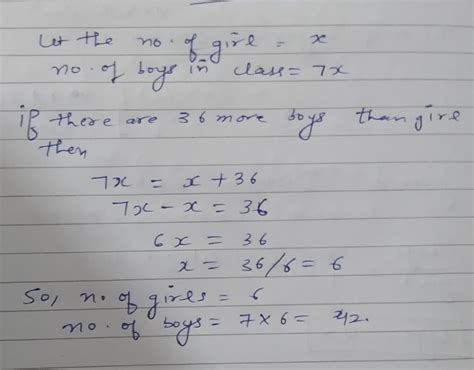 Let the no. of girl = x
no. of boys in class = 7x
if there are 36 more boys than girl
then
7x = x + 36
7x - x = 36
6x = 36
x = 36/6 = 6
So, no. of girls = 6
no. of boys = 7 × 6 = 42.